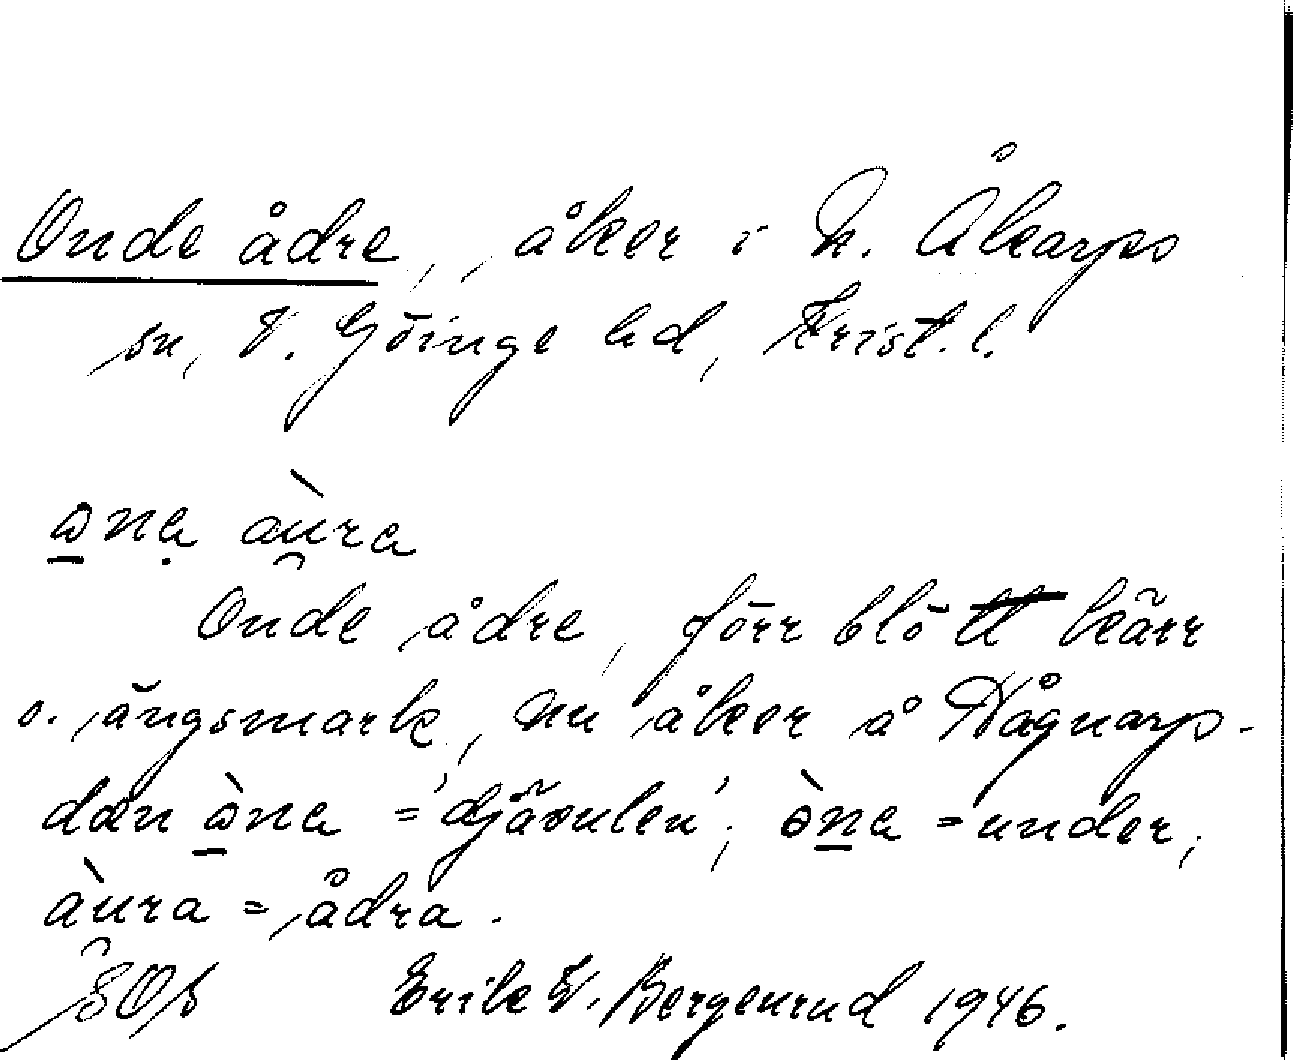 Onde ådre, åker i N. Åkarps
sn, V. Göinge hd, Krist. l.
ɷna àu̯ra
Onde ådre, förr blött kärr
o. ängsmark, nu åker å Hågnarp.
dan ɷ̀na = 'djävulen'; òna = under;
àu̯ra = ådra.
SOS Erik W. Bergenrud 1946.